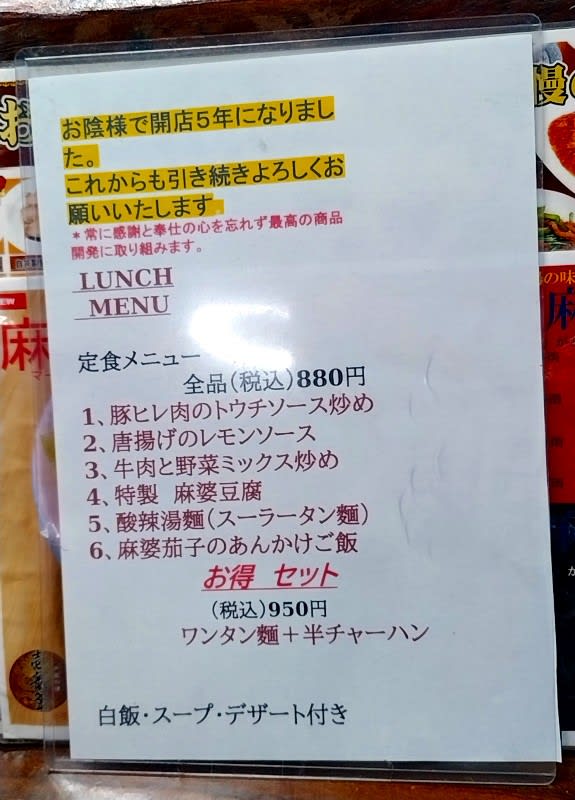 お陰様で開店5年になりまし
た。
これからも引き続きよろしくお
願いいたします。
*常に感謝と奉仕の心を忘れず最高の商品
開発に取り組みます。
LUNCH
MENU
定食メニュー
全品(税込)880円
1、豚ヒレ肉のトウチソース炒め
2、唐揚げのレモンソース
3、牛肉と野菜ミックス炒め
4、特製 麻婆豆腐
5、酸辣湯麵(スーラータン麵)
6、麻婆茄子のあんかけご飯
お得 セット
(税込)950円
ワンタン麵+半チャーハン
白飯・スープ・デザート付き
NEW
麻
の味